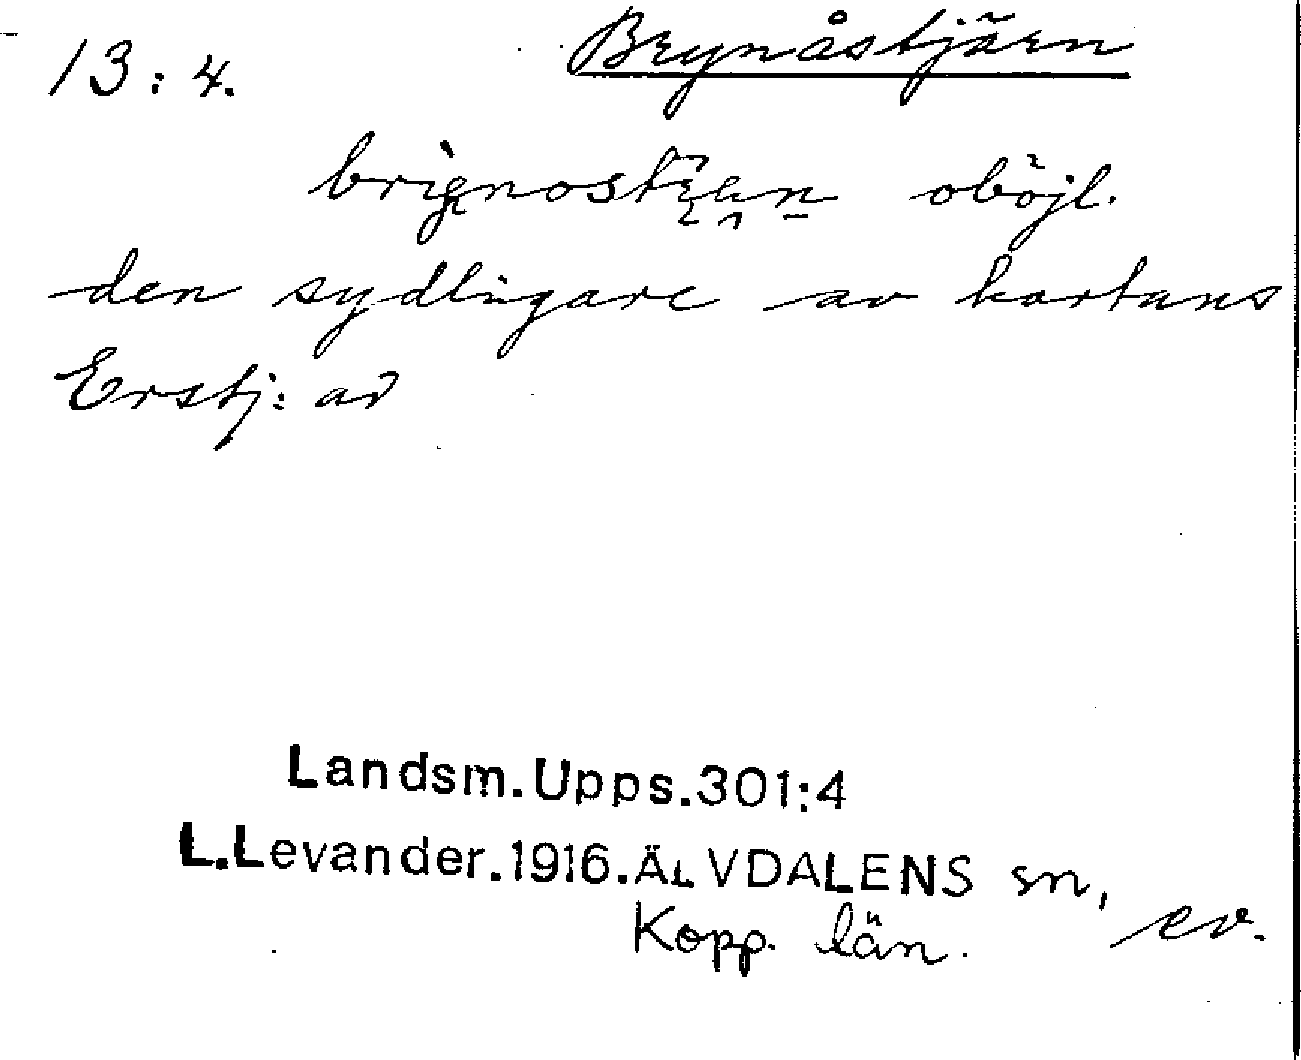 13:4. Brynåstjärn
oböjl.
den sydligare av kartans
Erstj:ar
Landsm.Upps.301:4
L.Levander.1916.ÄLVDALENS sn, ev.
Kopp. län.